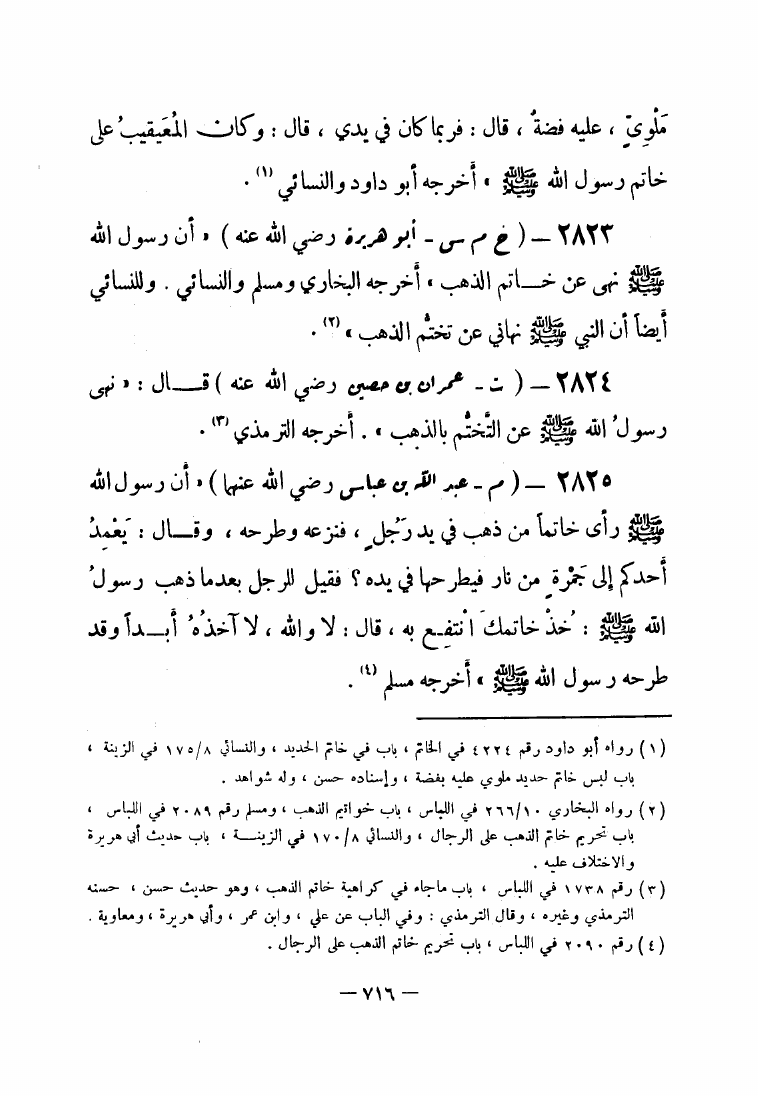 مَلْوِيّ ، عليه فضةٌ ، قال : فربما كان في يدي ، قال : وكان المُعَيقيبُ على
خاتم رسول الله ﷺ » أخرجه أبو داود والنسائي (١) .
٢٨٢٣ – ( خ م س - أبو هريرة رضي الله عنه ) « أن رسول الله
ﷺ نهى عن خاتم الذهب » أخرجه البخاري ومسلم والنسائي . وللنسائي
أيضاً أن النبي ﷺ نهاني عن تختُّم الذهب » (٢) .
٢٨٢٤ – ( ت - عمران بن حصين رضي الله عنه ) قال : « نهى
رسولُ الله ﷺ عن التَّختُّم بالذهب » . أخرجه الترمذي (٣) .
٢٨٢٥ – ( م - عبد الله بن عباس رضي الله عنهما ) « أن رسول الله
ﷺ رأى خاتماً من ذهب في يد رَجُلٍ ، فنزعه وطرحه ، وقال : يَعْمِدُ
أحدكم إلى جَمْرةٍ من نار فيطرحها في يده ؟ فقيل للرجل بعدما ذهب رسولُ
الله ﷺ : خُذْ خاتمكَ انْتفِع به ، قال : لا والله ، لا آخذُهُ أبداً وقد
طرحه رسول الله ﷺ » أخرجه مسلم (٤) .
(١) رواه أبو داود رقم ٤٢٢٤ في الخاتم ، باب في خاتم الحديد ، والنسائي ١٧٥/٨ في الزينة ،
باب لبس خاتم حديد ملوي عليه بفضة ، وإسناده حسن ، وله شواهد .
(٢) رواه البخاري ٢٦٦/١٠ في اللباس ، باب خواتيم الذهب ، ومسلم رقم ٢٠٨٩ في اللباس ،
باب تحريم خاتم الذهب على الرجال ، والنسائي ١٧٠/٨ في الزينة ، باب حديث أبي هريرة
والاختلاف عليه .
(٣) رقم ١٧٣٨ في اللباس ، باب ماجاء في كراهية خاتم الذهب ، وهو حديث حسن ، حسنه
الترمذي وغيره ، وقال الترمذي : وفي الباب عن علي ، وابن عمر ، وأبي هريرة ، ومعاوية .
(٤) رقم ٢٠٩٠ في اللباس ، باب تحريم خاتم الذهب على الرجال .
– ٧١٦ –